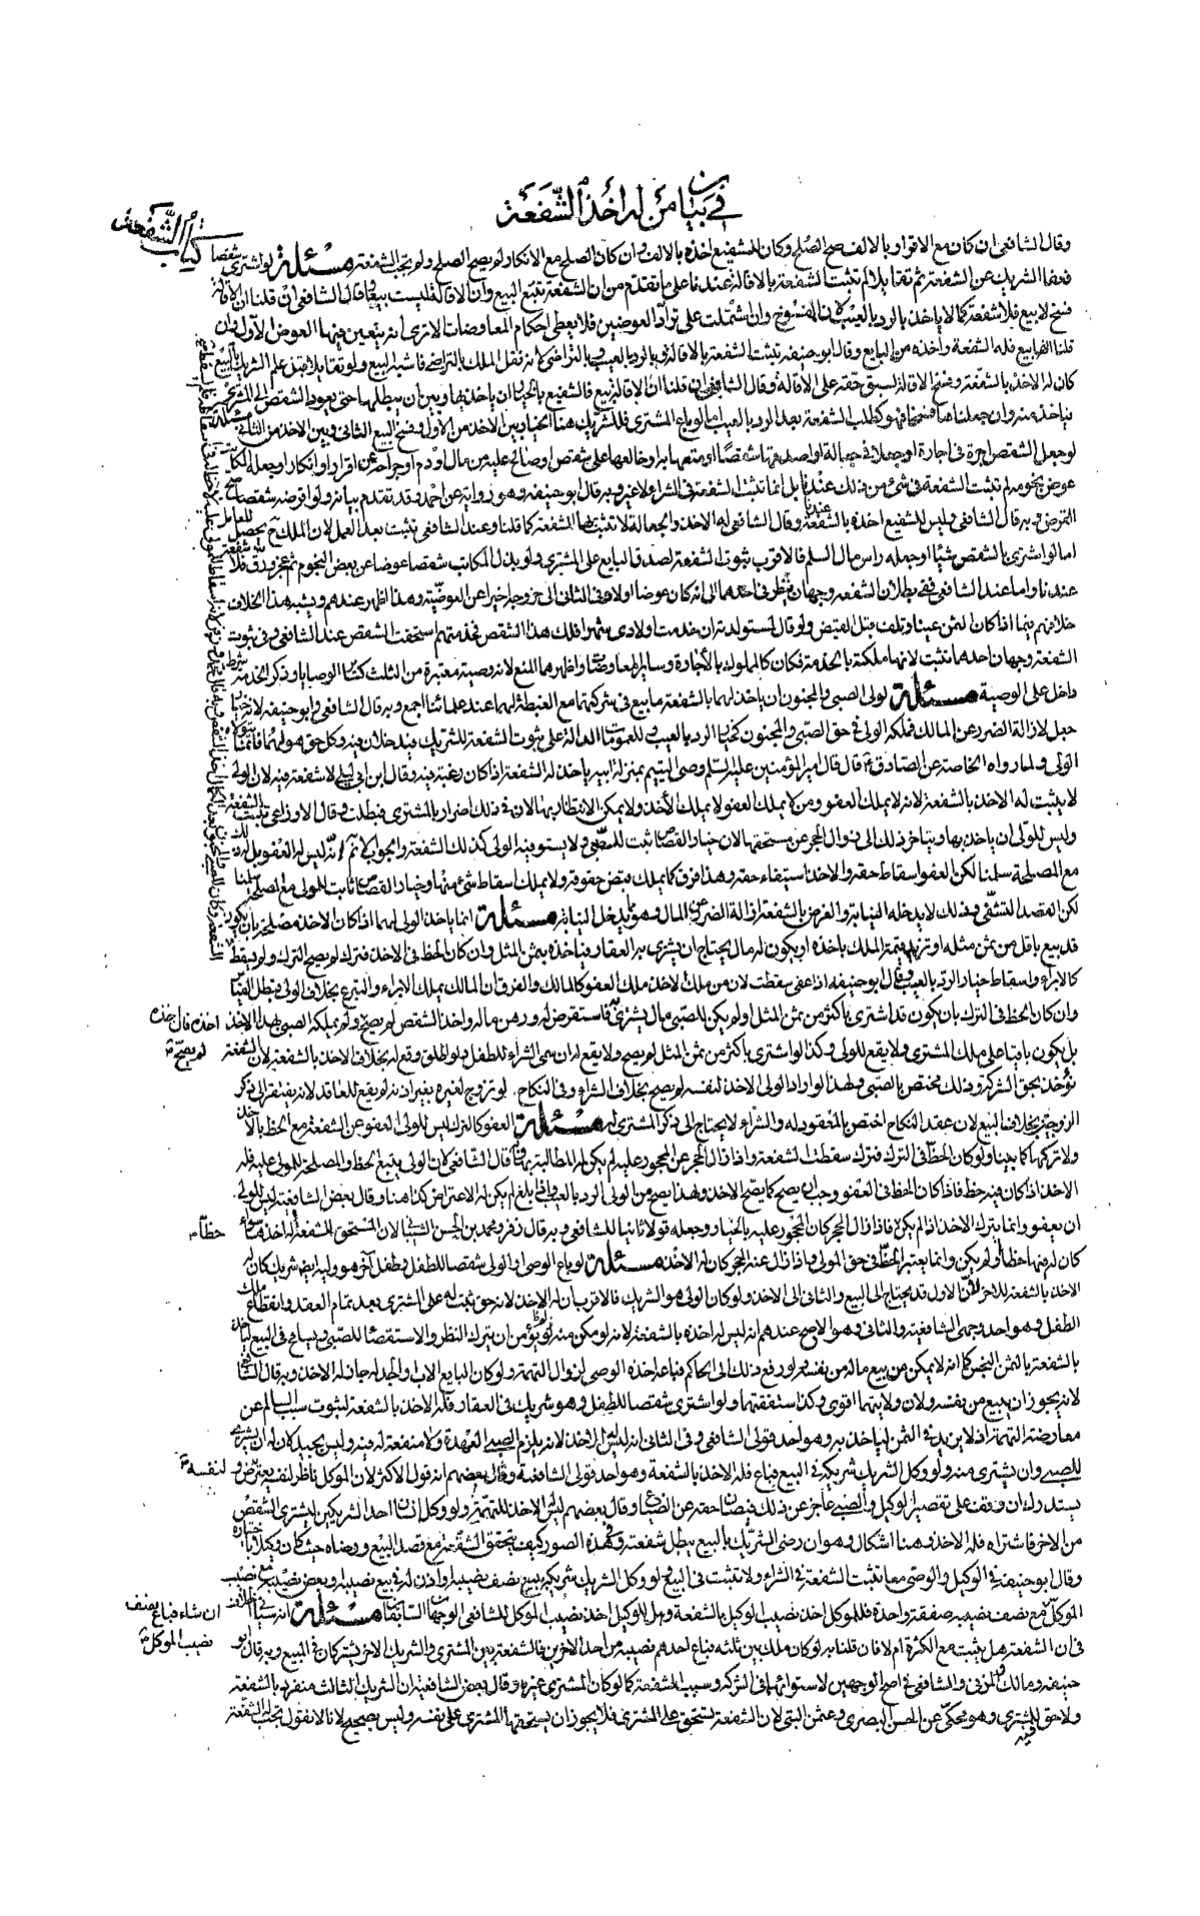 في بيان من له اخذ الشفعة
كتاب الشفعة
وقال الشافعي ان كان مع الاقرار بالالف صح الصلح وكان للشفيع اخذه بالالف وان كان الصلح مع الانكار لم يصح الصلح ولم يجب الشفعة مسئلة لو اشترى شقصا
فعفا الشريك عن الشفعة ثم تقايلا لم تثبت الشفعة بالاقالة عندنا على ما تقدم من ان الشفعة تتبع البيع وان الاقالة ليست بيعا وقال الشافعي ان قلنا ان الاقالة
فسخ لا بيع فلا شفعة كما لا ياخذ بالرد بالعيب لان الفسوخ وان اشتملت على تراد العوضين فلا يعطى احكام المعاوضات الا ترى انه يتعين فيها العوض الاول وان
قلنا انها بيع فله الشفعة واخذه من البايع وقال ابو حنيفة تثبت الشفعة بالاقالة وبالرد بالعيب بالتراضي لانه نقل الملك بالتراضي فاشبه البيع ولو تقايلا قبل علم الشريك بالبيع
كان له الاخذ بالشفعة وفسخ الاقالة لسبق حقه على الاقالة وقال الشافعي ان قلنا ان الاقالة بيع فالشفيع بالخيار بين ان ياخذ بها وبين ان يبطلها حتى يعود الشقص الى المشتري
فياخذ منه وان جعلناها فسخا فهو كطلب الشفعة بعد الرد بالعيب اما لو باع المشتري فللشريك هنا الخيار بين الاخذ من الاول وفسخ البيع الثاني وبين الاخذ من الثاني مسئلة
لو جعل الشقص اجرة في اجارة او جعلا في جعالة او اصدقها شقصا او متعها به او خالعها على شقص او صالح عليه من مال او دم او جراحة عن اقرار او انكار او جعله
عوض نجومه لم تثبت الشفعة في شئ من ذلك عندنا بل انما تثبت الشفعة في الشراء لا غير وبه قال ابو حنيفة وهو رواية عن احمد وقد تقدم بيانه ولو اقرضه شقصا صح
القرض وبه قال الشافعي وليس للشفيع اخذه بالشفعة عندنا وقال الشافعي له الاخذ والجعالة لا تثبت بها الشفعة كما قلنا وعند الشافعي تثبت بعد العمل لان الملك ح يحصل للعامل
اما لو اشترى بالشقص شيئا او جعله راس مال السلم فالاقرب ثبوت الشفعة لصدق البايع على المشتري ولو بذل المكاتب شقصا عوضا عن بعض النجوم ثم عجز ورق فلا شفعة
عندنا واما عند الشافعي ففي بطلان الشفعة وجهان ينظر في احدهما الى انه كان عوضا اولا وفي الثاني الى خروجه اخيرا عن العوضية وهذا اظهر عندهم ويشبه هذا الخلاف
خلافهم فيما اذا كان الثمن عينا وتلف قبل القبض ولو قال لمستولدته ان خدمت اولادي شهرا فلك هذا الشقص فخدمتهم استحقت الشقص عند الشافعي وفي ثبوت
الشفعة وجهان احدهما تثبت لانها ملكته بالخدمة فكان كالمملوك بالاجارة وساير المعاوضات واظهرهما المنع لانه وصية معتبرة من الثلث كساير الوصايا وذكر الخدمة شرط
داخل على الوصية مسئلة لولي الصبي والمجنون ان ياخذ لهما بالشفعة ما بيع في شركتهما مع الغبطة لهما عند علمائنا اجمع وبه قال الشافعي وابو حنيفة لانه خيار
جعل لازالة الضرر عن المالك فملكه الولي في حق الصبي والمجنون كخيار الرد بالعيب وللعمومات الدالة على ثبوت الشفعة للشريك فيدخلان فيه وكل حق هو لهما فانما يتولاه
الولي ولما رواه الخاصة عن الصادق ع قال قال امير المؤمنين عليه السلم وصي اليتيم بمنزلة ابيه ياخذ له الشفعة اذا كان رغبة فيه وقال ابن ابي ليلى لا شفعة فيه لان الولي
لا يثبت له الاخذ بالشفعة لانه لا يملك العفو ومن لا يملك العفو لا يملك الاخذ ولا يمكن الانتظار بها لان في ذلك اضرار بالمشتري فبطلت وقال الاوزاعي تثبت الشفعة
وليس للولي ان ياخذ بها ويتاخر ذلك الى زوال الحجر عن مستحقها لان خيار القصاص ثبت للصبي ولا يستوفيه الولي كذلك الشفعة والجواب لا نم انه ليس له العفو بل له ذلك
مع المصلحة سلمنا لكن العفو اسقاط حقه والاخذ استيفاء حقه وهذا فرق كما يملك قبض حقوقه ولا يملك اسقاط شئ منها وخيار القصاص ثابت للولي مع المصلحة سلمنا
لكن القصد التشفي وذلك لا يدخله النيابة والغرض بالشفعة ازالة الضرر عن المال وهو مما يدخل النيابة مسئلة انما ياخذ الولي لهما اذا كان الاخذ مصلحة بان يكون
قد بيع باقل من ثمن مثله او تزيد قيمة الملك باخذه او يكون له مال يحتاج ان يشتري به العقار فياخذه بثمن المثل وان كان الحظ في الاخذ فترك لم يصح الترك ولم يسقط
كالابراء واسقاط خيار الرد بالعيب وقال ابو حنيفة اذا عفى سقطت لان من ملك الاخذ ملك العفو كالمالك والفرق ان المالك يملك الابراء والتبرع بخلاف الولي فبطل القياس
وان كان الحظ في الترك بان يكون قد اشترى باكثر من ثمن المثل او لم يكن للصبي مال يشتري به فاستقرض له ورهن ماله واخذ الشقص لم يصح ولم يملكه الصبي بهذا الاخذ
بل يكون باقيا على ملك المشتري ولا يقع للولي وكذا لو اشترى باكثر من ثمن المثل لم يصح ولا يقع له ان سمى الشراء للطفل ولو اطلق وقع له بخلاف الاخذ بالشفعة لان الشفعة
تؤخذ بحق الشركة وذلك مختص بالصبي ولهذا لو اراد الولي الاخذ لنفسه لم يصح بخلاف الشراء وفي النكاح لو تزوج لغيره بغير اذنه لم يقع للعاقد لانه يفتقر الى ذكر
الزوجية بخلاف البيع لان عقد النكاح اختص بالمعقود له والشراء لا يحتاج الى ذكر المشتري له مسئلة العفو كالترك ليس للولي العفو عن الشفعة مع الحظ بالاخذ
ولا تركها كما بينا ولو كان الحظ في الترك فترك سقطت الشفعة واذا زال الحجر عن المحجور عليه لم يكن له المطالبة بها وبه قال الشافعي لان الولي يتبع الحظ والمصلحة للمولى عليه فله
الاخذ اذا كان فيه حظ فاذا كان الحظ في العفو وجب ان يصح كما يصح الاخذ ولهذا يصح من الولي الرد بالعيب فاذا بلغ لم يكن له الاعتراض كذا هنا وقال بعض الشافعية ليس للولي
ان يعفو وانما يترك الاخذ اذا لم يكن فاذا زال الحجر كان المحجور عليه بالخيار وجعله قولا ثانيا للشافعي وبه قال زفر ومحمد بن الحسن الشيباني لان المستحق للشفعة له اخذها سواء
كان له فيها حظ او لم يكن وانما يعتبر الحظ في حق المولى فاذا زال عنه الحجر كان له الاخذ مسئلة لو باع الوصي او الولي شقصا للطفل وطفل آخر هو وليه ايضا شريك كان له
الاخذ بالشفعة للاخر لان الاول قد يحتاج الى البيع والثاني الى الاخذ ولو كان الولي هو الشريك فالاقرب ان له الاخذ لانه حق ثبت له على المشتري بعد تمام العقد وانقطاع ملك
الطفل وهو احد وجهي الشافعية والثاني وهو الاصح عندهم انه ليس له اخذه بالشفعة لانه لو مكن منه لم يؤمن ان يترك النظر والاستقصاء للصبي ويسامح في البيع لياخذ
بالشفعة بالثمن البخس كما انه لا يمكن من بيع ماله من نفسه ولو رفع ذلك الى الحاكم فباعه اخذه الوصي لزوال التهمة ولو كان البايع الاب او الجد له جاز له الاخذ وبه قال الشافعي
لانه يجوز ان يبيع من نفسه ولان ولايتهما اقوى وكذا شفقتهما ولو اشترى شقصا للطفل وهو شريك في العقار فله الاخذ بالشفعة لثبوت سببه السالم عن
معارضة التهمة اذ لا يزيد في الثمن لياخذ به وهو احد قولي الشافعي وفي الثاني انه ليس له الاخذ لانه يلزم الصبي العهدة ولا منفعة له فيه وليس بجيد كما ان له ان يشتري
للصبي وان يشتري منه ولو وكل الشريك شريكه في البيع فباع فله الاخذ بالشفعة وهو احد قولي الشافعية وقال بعضهم انه قول الاكثر لان الموكل ناظر لنفسه يعترض و
يستدرك ان وقف على تقصير الوكيل والصبي عاجز عن ذلك فيصان حقه عن الضياع وقال بعضهم ليس له الاخذ للتهمة ولو وكل انسان احد الشريكين ليشتري الشقص
من الاخر فاشتراه فله الاخذ وهنا اشكال وهو ان رضى الشريك بالبيع يبطل شفعته وفي هذه الصور كيف يتحقق الشفعة مع قصد البيع ورضاه حيث كان وكيلا باختياره
وقال ابو حنيفة في الوكيل والوصي معا تثبت الشفعة في الشراء ولا تثبت في البيع ولو وكل الشريك شريكه ببيع نصف نصيبه واذن له في بيع نصيبه او بعض نصيبه مع نصيب
الموكل مع نصف نصيبه صفقة واحدة فللموكل اخذ نصيب الوكيل بالشفعة وهل للوكيل اخذ نصيب الموكل للشافعي الوجهان السابقان مسئلة انه سياتي الخلاف
في ان الشفعة هل يثبت مع الكثرة ام لا فان قلنا به لو كان ملك بين ثلثة فباع احدهم نصيبه من احد الاخرين فالشفعة بين المشتري والشريك الاخر يشتركان في المبيع وبه قال ابو
حنيفة ومالك والمزني والشافعي في اصح الوجهين لاستوائهما في الشركة وسبب الشفعة كما لو كان المشتري غيره وقال بعض الشافعية ان الشريك الثالث منفرد بالشفعة
ولا حق للمشتري فيه وهو محكي عن الحسن البصري وعثمن البتي لان الشفعة تستحق على المشتري فلا يجوز ان يستحقها المشتري على نفسه وليس بصحيح لانا لا نقول يجب الشفعة